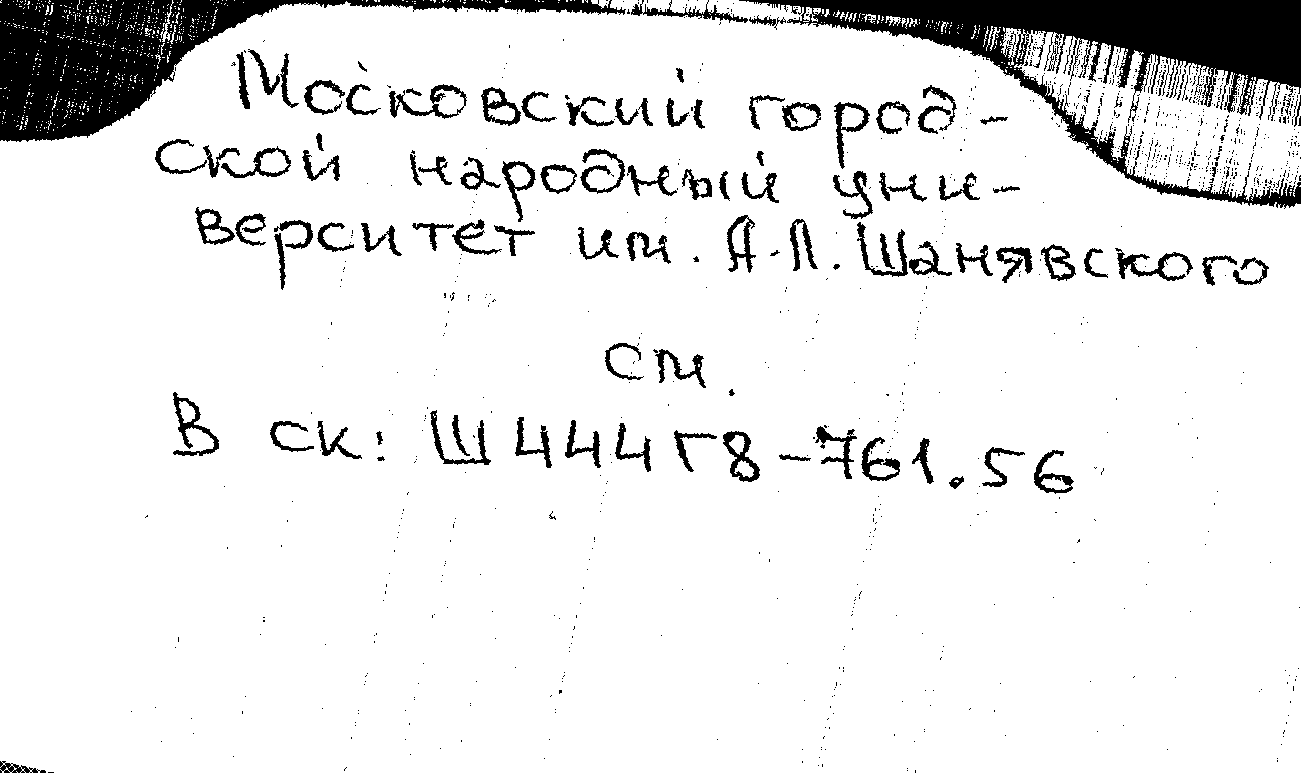 Московский город-
ской народный уни-
верситет им. А.Л. Шанявского
см.
В ск: Ш444г8-761.56